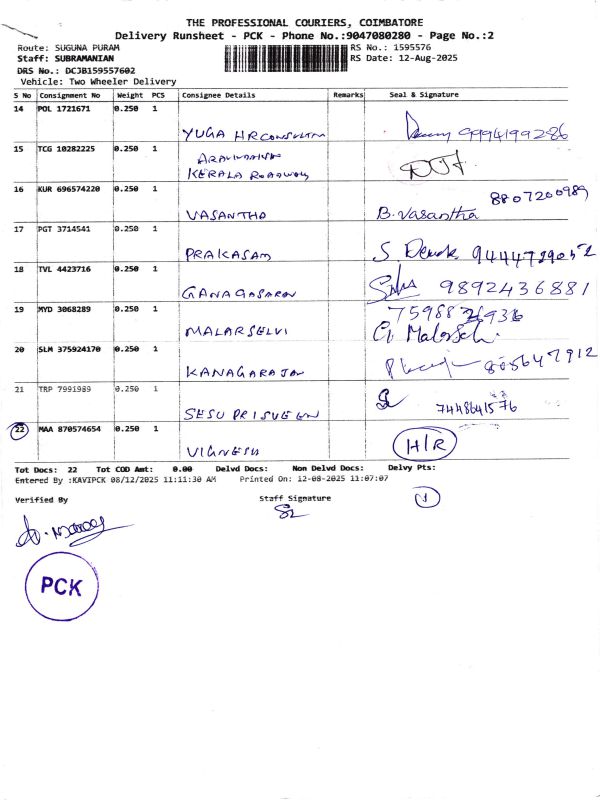 THE PROFESSIONAL COURIERS, COIMBATORE
Delivery Runsheet - PCK - Phone No.:9047080280 - Page No.:2
Route: SUGUNA PURAM
RS No.: 1595576
Staff: SUBRAMANIAN
RS Date: 12-Aug-2025
DRS No.: DCJB159557602
Vehicle: Two Wheeler Delivery
S No Consignment No Weight PCS Consignee Details Remarks Seal & Signature
14 POL 1721671 0.250 1
YUGA HR CONSULTIN 9994199286
15 TCG 10282225 0.250 1
KERALA ROADWAYS
16 KUR 696574220 0.250 1
8807200989
VASANTHA B. Vasantha
17 PGT 3714541 0.250 1
PRAKASAM S.
18 TVL 4423716 0.250 1
9892436881
19 MYD 3068289 0.250 1
MALARSELVI
20 SLM 375924170 0.250 1
KANAGARAJAN
21 TRP 7991989 0.250 1
22 MAA 870574654 0.250 1
VIGNESH H/R
Tot Docs: 22 Tot COD Amt: 0.00 Delvd Docs: Non Delvd Docs: Delvy Pts:
Entered By :KAVIPCK 08/12/2025 11:11:30 AM Printed On: 12-08-2025 11:07:07
Verified By Staff Signature
PCK